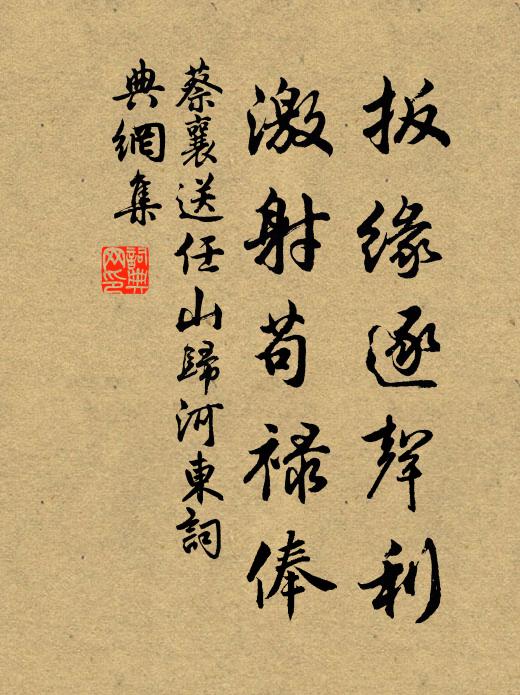 扳緣逐聲利
激射苟禄俸
蔡襄送任山歸河東詞
典網集
詞典
网印